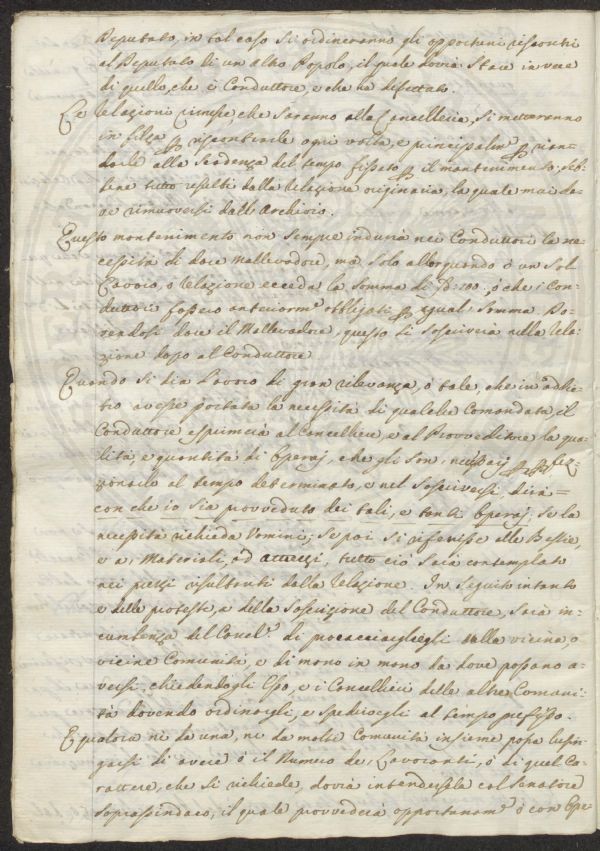 Deputato, in tal caso si ordineranno gli opportuni riscontri
al Deputato di un altro Popolo, il quale dovrà stare in vece
di quello, che è Conduttore, e che ha difettato.
Le relazioni rimesse, che saranno alla Cancelleria, si metteranno
in filza per riscontrarle ogni volta, e principalm.e
darle alla scadenza del tempo fissato per il mantenimento; seb-
bene tutto resulti dalla relazione originaria, la quale mai de-
ve rimuoversi dall'Archivio.
Questo mantenimento non sempre indurrà nei Conduttori la ne-
cessità di dare Mallevadore, ma solo allorquando o un sol
Lavoro, o relazione ecceda la somma di 100, o che i con-
duttori fossero anteriorm.e obbligati per egual somma. Do-
vendosi dare il Mallevadore, questo si soscriverà nella rela-
zione dopo al Conduttore.
Quando si dia Lavoro di gran rilevanza, o tale, che in addie-
tro avesse portata la necessità di qualche Comandata, il
Conduttore esprimerà al Cancelliere, e al Provveditore la qua-
lità, e quantità di Operaj, che gli son necessarj per
zionarlo al tempo determinato, e nel soscriversi, dirà
con che io sia provveduto dei tali, e tanti Operaj, se la
necessità richieda Uomini; se poi si riferisce alle Bestie,
o a' Materiali, ad attrezzi, tutto ciò sarà contemplato
nei prezzi risultanti dalla relazione. In seguito intanto
e delle proteste, e della soscrizione del Conduttore, sarà in-
cumbenza del Cancel.e di procacciarglieli dalla vicina, o
vicine Comunità, e di mano in mano da dove possano a-
versi, chiedendogli Esso, e i Cancellieri delle altre Comuni-
tà dovendo ordinargli, e spedirgli al tempo prefisso.
E qualora nè da una, nè da molte Comunità insieme possa lusin-
garsi di avere o il Numero de' Lavoranti, o di quel Ca-
rattere, che si richiede, dovrà intendersela col Senatore
Soprassindaco, il quale provvederà opportunam.e o con Ope-